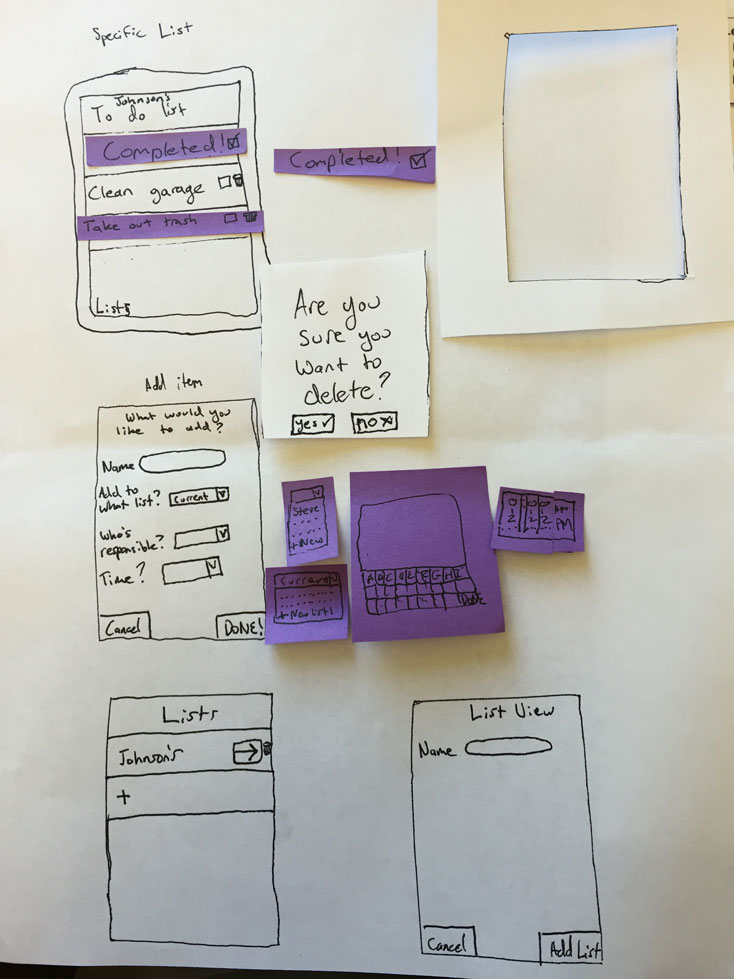 Specific List
Johnson's
To do list
Completed!
Completed!
Clean garage
Take out trash
Lists
Are you
sure you
want to
delete?
yes
no
Add item
What would you
like to add?
Name
Add to
what list?
Current
Who's
responsible?
Time?
Cancel
DONE!
Steve
+New
Current
+ New list!
DONE
0 : 0 0
AM
PM
Lists
Johnson's
+
List View
Name
Cancel
Add List